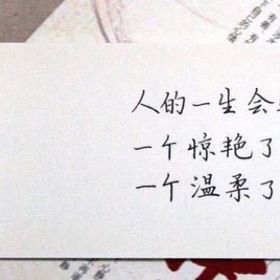 人的一生会
一个惊艳了
一个温柔了